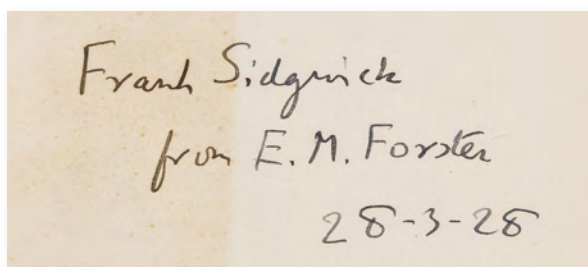 Frank Sidgwick
from E. M. Forster
28-3-28